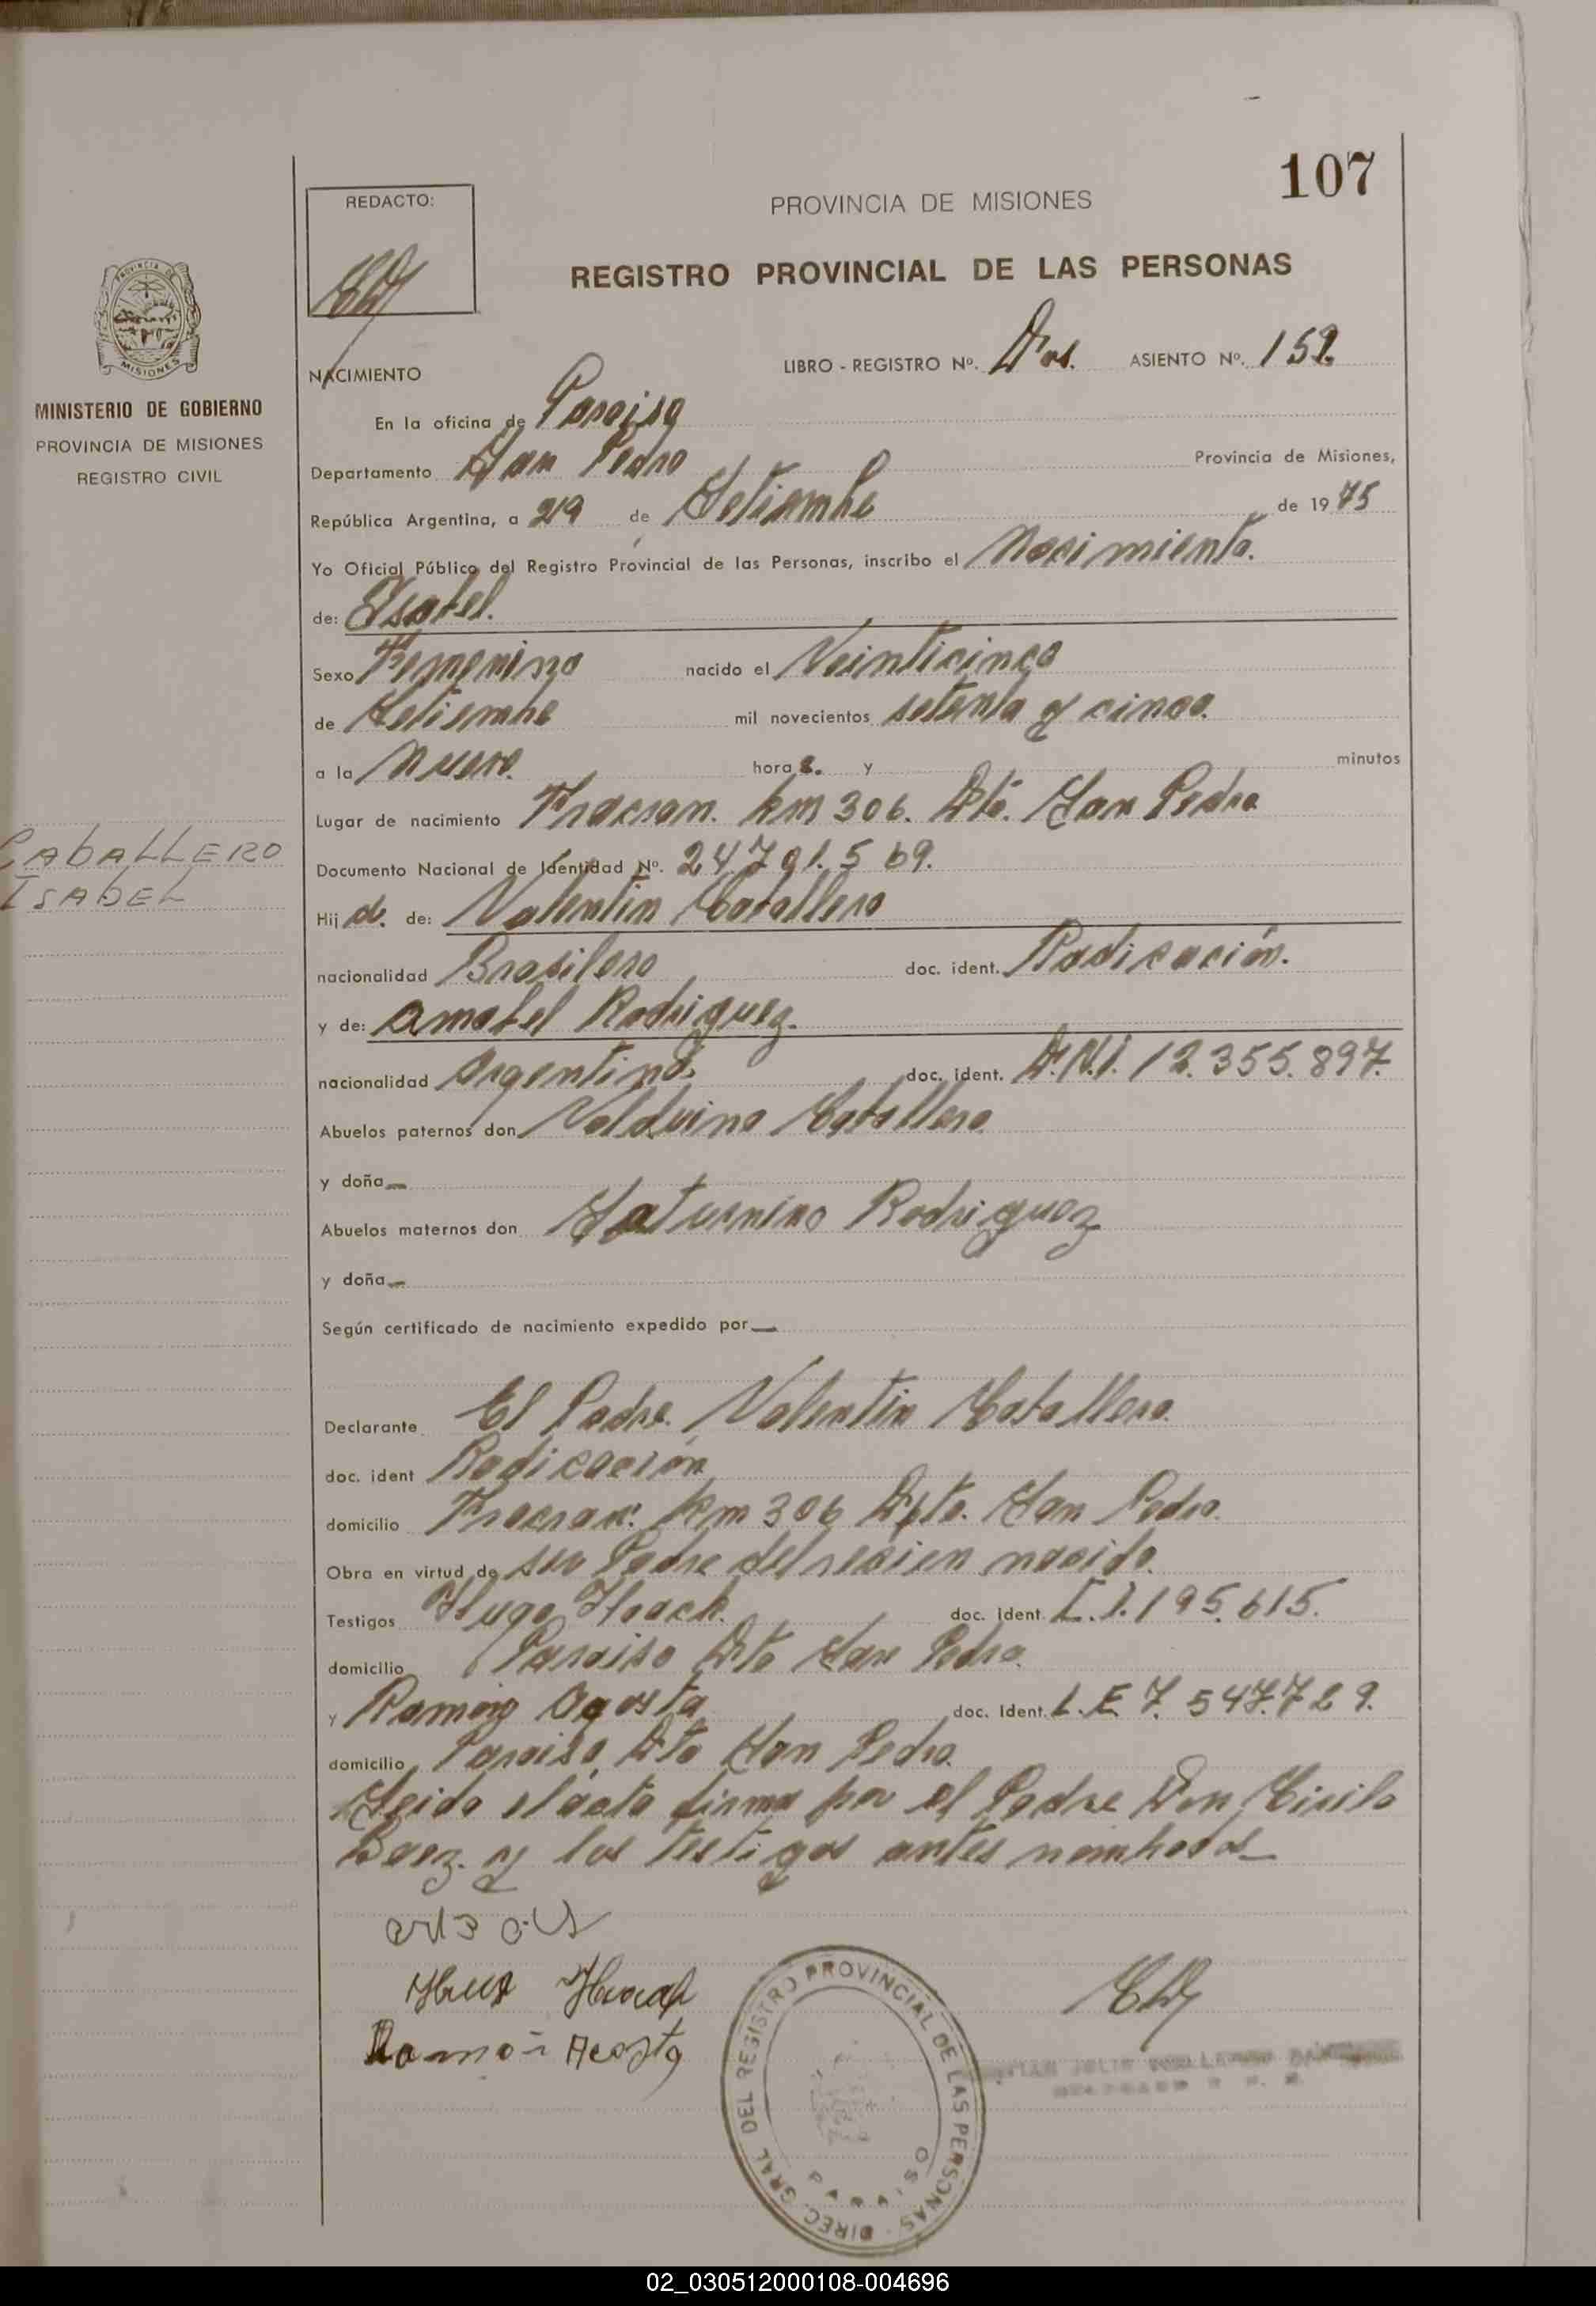 107
REDACTO:
PROVINCIA DE MISIONES
REGISTRO PROVINCIAL DE LAS PERSONAS
PROVINCIA DE
MISIONES
MINISTERIO DE GOBIERNO
PROVINCIA DE MISIONES
REGISTRO CIVIL
NACIMIENTO
LIBRO - REGISTRO Nº. Dos. ASIENTO Nº. 152
En la oficina de Paraiso
Departamento San Pedro Provincia de Misiones,
República Argentina, a 29 de Setiembre de 1975
Yo Oficial Público del Registro Provincial de las Personas, inscribo el Nacimiento.
de: Ysabel.
Sexo Femenino nacido el Veinticinco
de Setiembre mil novecientos setenta y cinco.
a la Nueve. horas. y minutos
Lugar de nacimiento Fracran. km 306. Dto. San Pedro
CABALLERO
ISABEL
Documento Nacional de Identidad Nº. 24.791.569.
Hij a. de: Valentin Caballero
nacionalidad Brasilero doc. ident. Radicación.
y de: Amabel Rodriguez.
nacionalidad Argentina. doc. ident. D.N.I. 12.355.897.
Abuelos paternos don Valduino Caballero
y doña —
Abuelos maternos don Saturnino Rodriguez
y doña —
Según certificado de nacimiento expedido por —
Declarante El Padre. Valentin Caballero.
doc. ident Radicación
domicilio Fracran. km 306 Dpto. San Pedro.
Obra en virtud de ser Padre del recien nacido.
Testigos Hugo doc. ident. C.I. 195.615.
domicilio Paraiso Dto San Pedro.
y Ramón Acosta doc. ident. L.E 7.547.729.
domicilio Paraiso, Dto San Pedro.
Leida el acta firma por el Padre Don Cirilo
Baez. y los testigos antes nombrados
Ramón Acosta
DIREC. GRAL DEL REGISTRO PROVINCIAL DE LAS PERSONAS
PARAISO
02_030512000108-004696